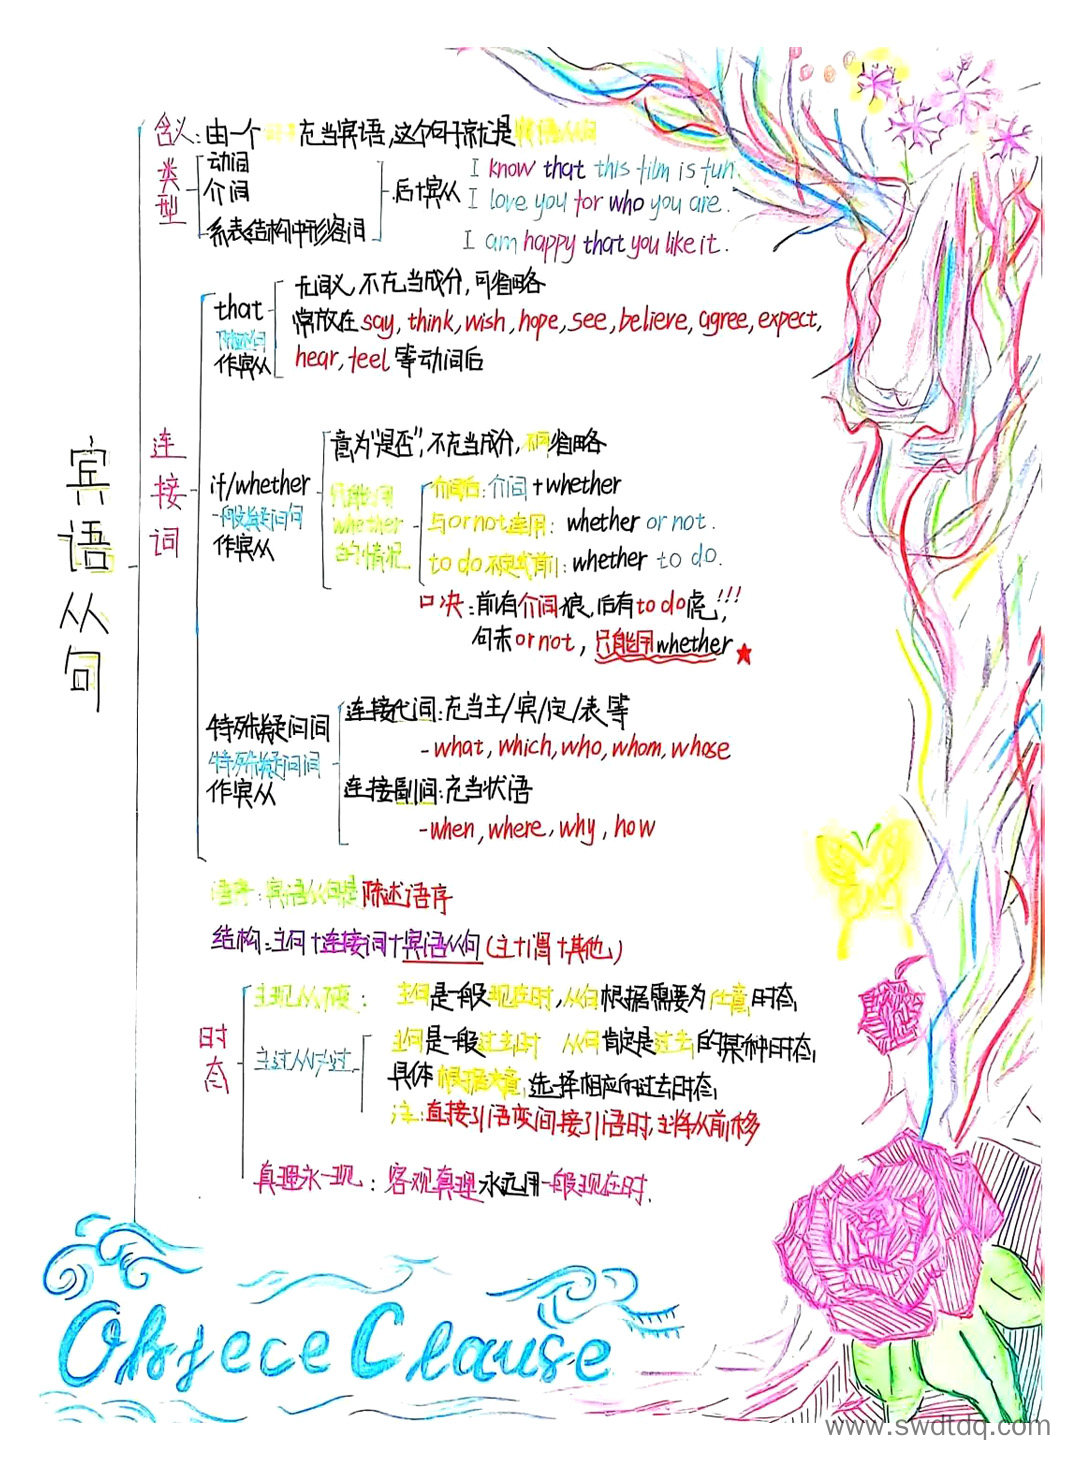 宾语从句
含义:由一个句子充当宾语,这个句子就是宾语从句
类型
动词
介词
系表结构中形容词
后+宾从
I know that this film is fun.
I love you for who you are.
I am happy that you like it.
连接词
that
陈述句
作宾从
无词义,不充当成分,可省略
常放在say, think, wish, hope, see, believe, agree, expect,
hear, feel 等动词后
if/whether
一般疑问句
作宾从
意为“是否”,不充当成分,不可省略
只能用
whether
的情况
介词后:介词+whether
与or not连用: whether or not.
to do 不定式前: whether to do.
口决:前有介词狼,后有to do虎,!!!
句末or not, 只能用whether
特殊疑问词
特殊疑问词
作宾从
连接代词:充当主/宾/定/表等
-what, which, who, whom, whose
连接副词:充当状语
-when, where, why, how
语序:宾语从句是陈述语序
结构:主句+连接词+宾语从句(主+谓+其他)
时态
主现从不变: 主句是一般现在时,从句根据需要为任意时态
主过从学过
主句是一般过去时 从句肯定是过去的某种时态
具体根据文意,选择相应的过去时态
注:直接引语变间接引语时,
真理永一现: 客观真理永远用一般现在时.
Objece Clause
www.swdtdq.com